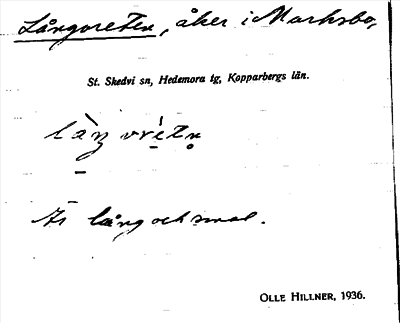 Långvreten, åker i Marksbo,
St. Skedvi sn, Hedemora tg, Kopparbergs län.
Är lång och smal.
OLLE HILLNER, 1936.